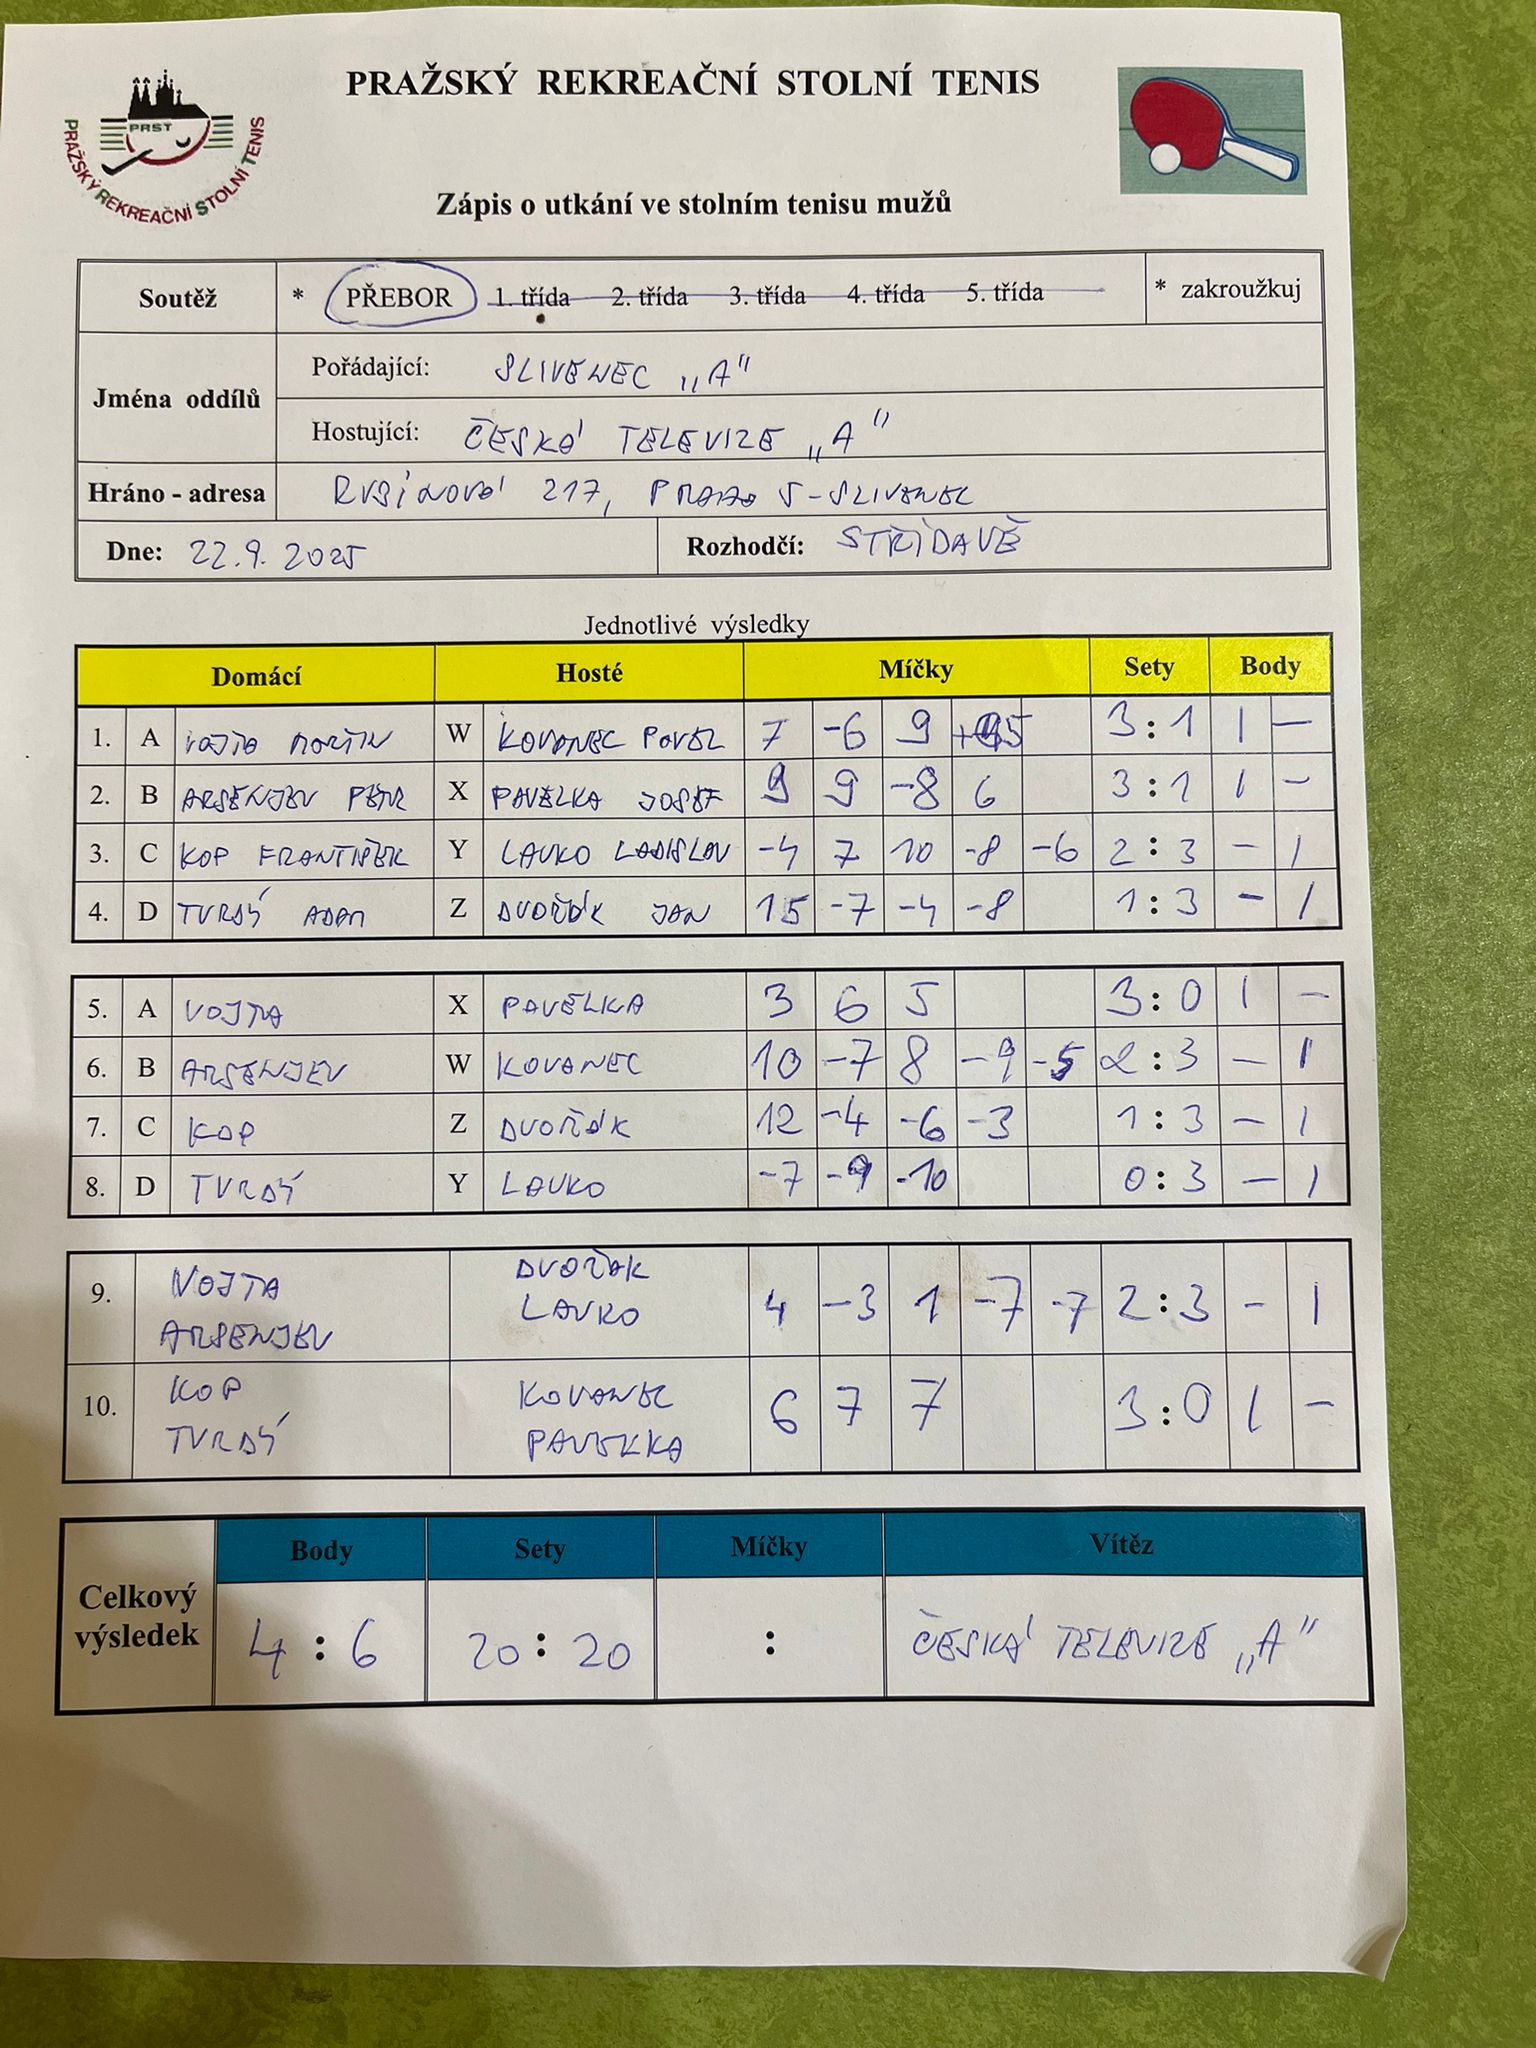 PRAŽSKÝ REKREAČNÍ STOLNÍ TENIS
PRST
PRAŽSKÝ REKREAČNÍ STOLNÍ TENIS
Zápis o utkání ve stolním tenisu mužů
Soutěž * PŘEBOR 1. třída 2. třída 3. třída 4. třída 5. třída * zakroužkuj
Jména oddílů
Pořádající: SLIVENEC „A"
Hostující: ČESKÁ TELEVIZE „A"
Hráno - adresa RUBÍNOVÁ 217, PRAHA 5-SLIVENEC
Dne: 22.9.2025 Rozhodčí: STŘÍDAVĚ
Jednotlivé výsledky
Domácí Hosté Míčky Sety Body
1. A VOJTA MARTIN W KOVANEC PAVEL 7 -6 9 3:1 1 —
2. B ARSENJEV PETR X PAVELKA JOSEF 9 9 -8 6 3:1 1 —
3. C KOP FRANTIŠEK Y LAVKO LADISLAV -4 7 10 -8 -6 2:3 — 1
4. D TVRDÝ ADAM Z DVOŘÁK JAN 15 -7 -4 -8 1:3 — 1
5. A VOJTA X PAVELKA 3 6 5 3:0 1 —
6. B ARSENJEV W KOVANEC 10 -7 8 -9 -5 2:3 — 1
7. C KOP Z DVOŘÁK 12 -4 -6 -3 1:3 — 1
8. D TVRDÝ Y LAVKO -7 -9 -10 0:3 — 1
9. VOJTA DVOŘÁK 4 -3 1 -7 -7 2:3 — 1
ARSENJEV LAVKO
10. KOP KOVANEC 6 7 7 3:0 1 —
TVRDÝ PAVEKKA
Celkový výsledek
Body Sety Míčky Vítěz
4:6 20:20 : ČESKÁ TELEVIZE „A"